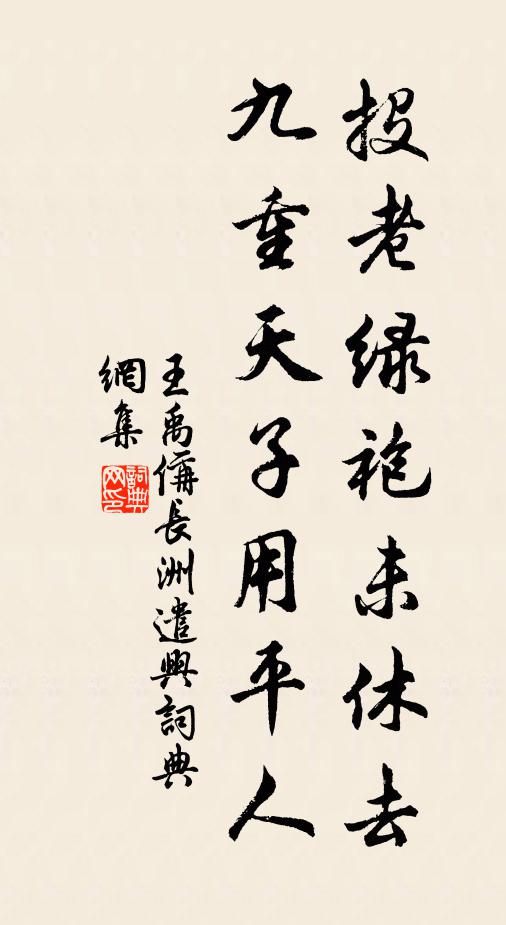 投老绿袍未休去
九重天子用平人
王禹偁長洲遣興詞典
網集
詞典網印